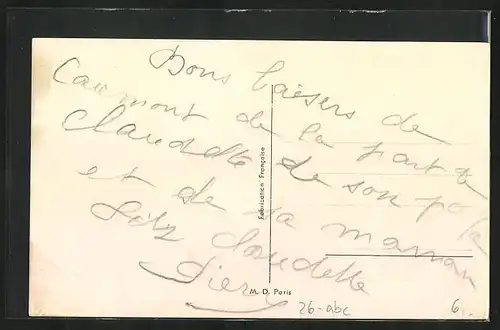 Bons baisers de
Caumont de la part de
Claudette de son papa
et de sa maman
Claudette
Fabrication Française
M. D. Paris
26-abc
6,-